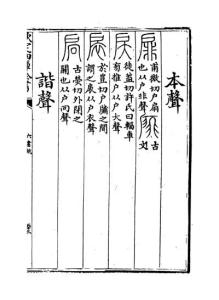 本聲
甫微切戶扇
也从戶非聲
古
文
徒蓋切許氏曰輜車
旁推戶从戶大聲
於豈切戶牖之間
謂之扆从戶衣聲
古熒切外閉之
關也从戶冋聲
諧聲
欽定四庫全書
六書統